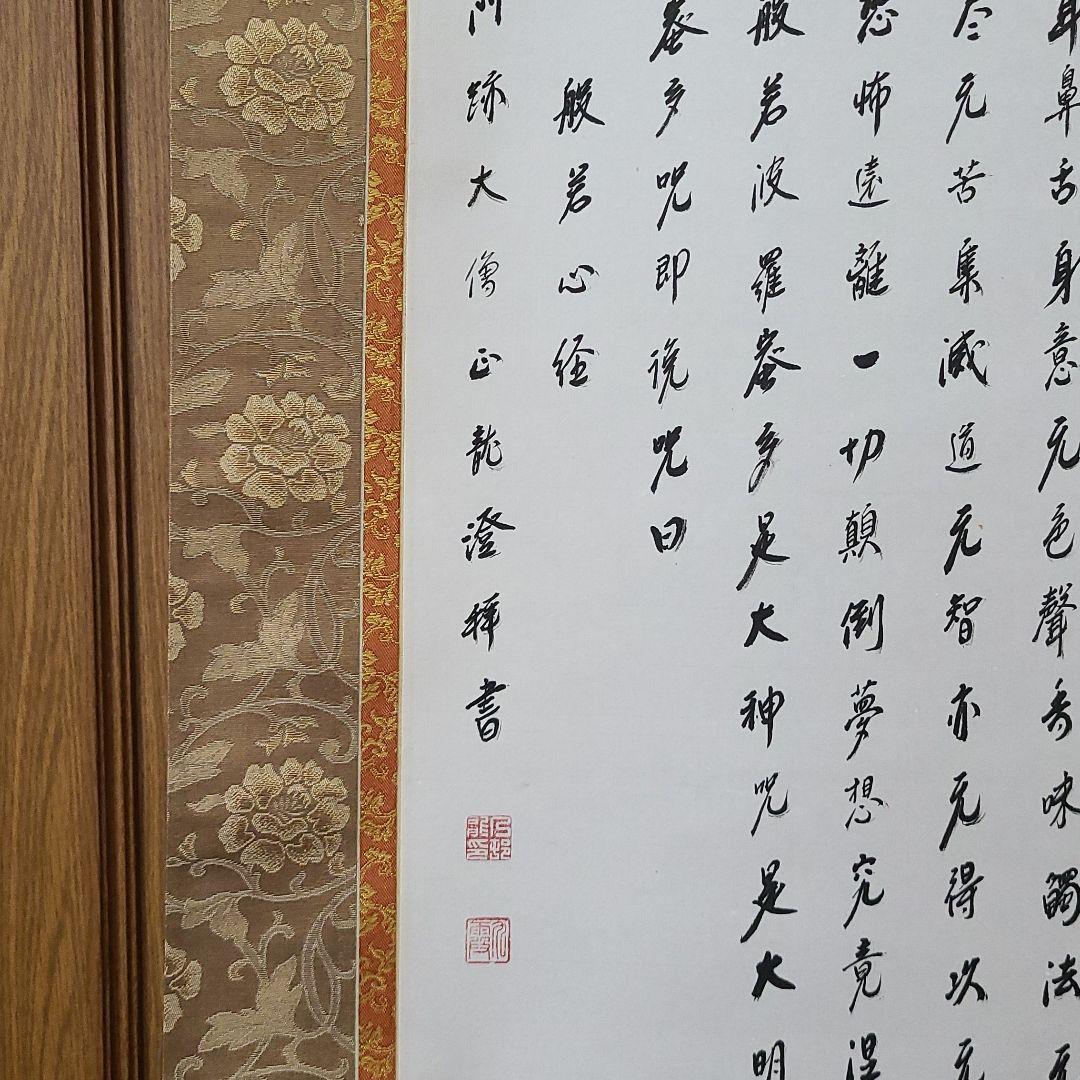 耳鼻舌身意无色聲香味觸法无
尽无苦集滅道无智亦无得以无
恐怖遠離一切顛倒夢想究竟涅
般若波羅蜜多是大神呪是大明
蜜多呪即説呪曰
般若心経
門跡大僧正龍澄拝書